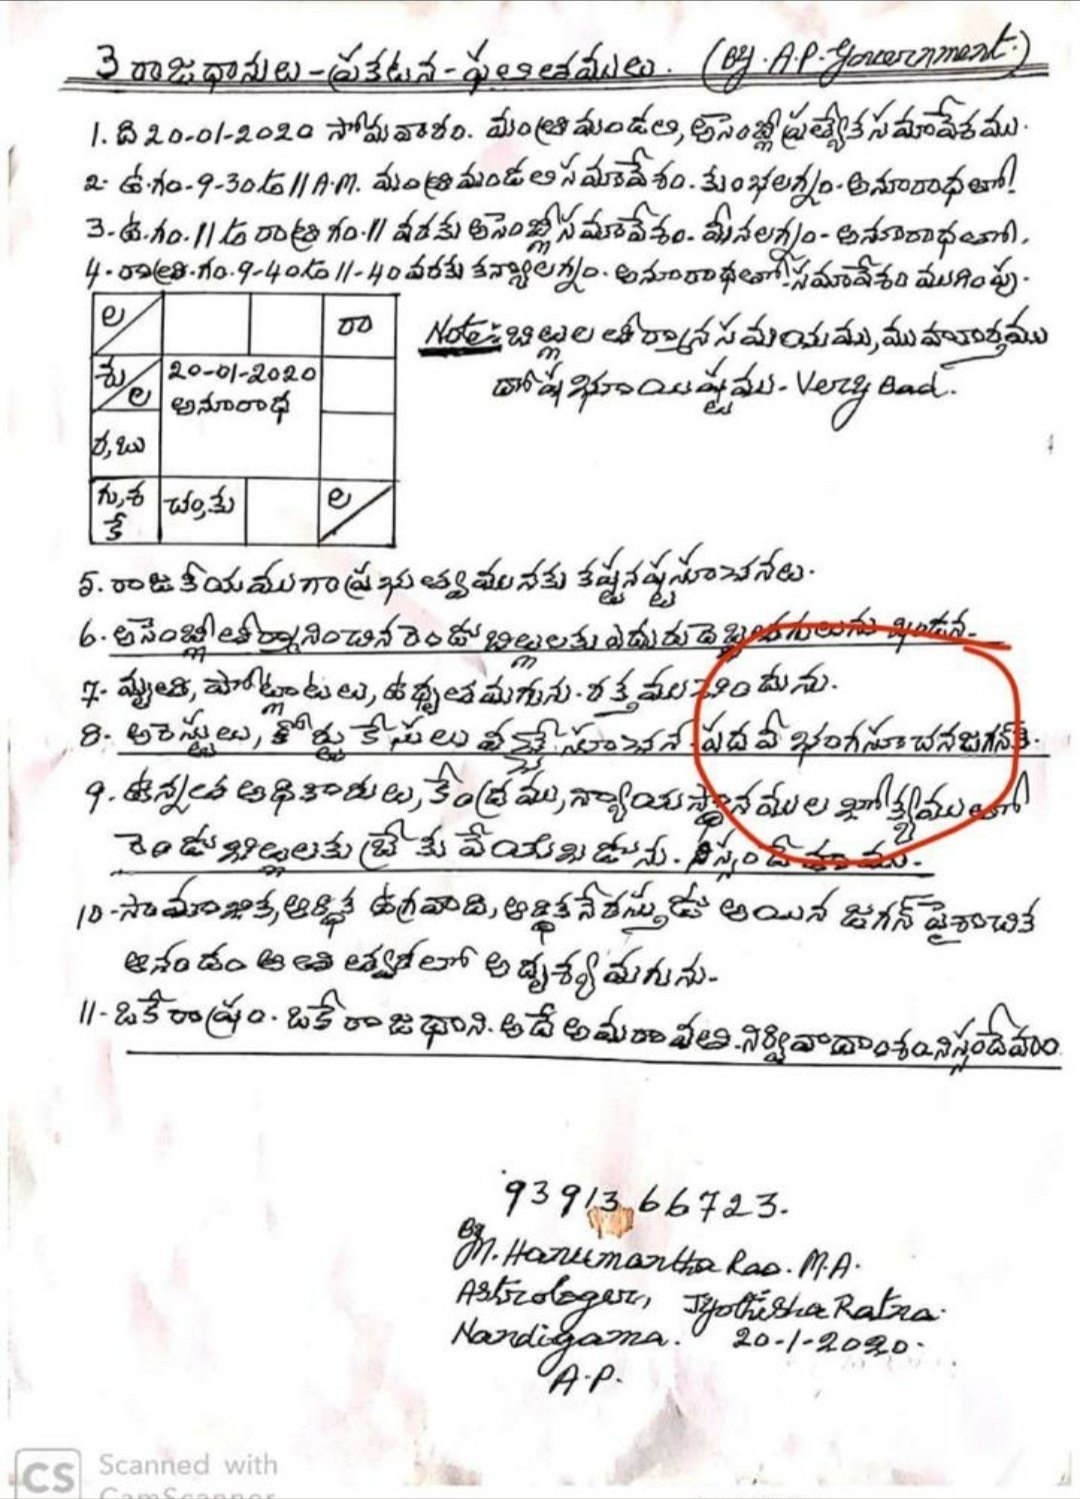 3 రాజధానులు - ప్రకటన - ఫలితములు. (By. A.P. Government.)
1. ది 20-01-2020 సోమవారం. మంత్రిమండలి, అసెంబ్లీ ప్రత్యేక సమావేశము.
2. ఉ.గం.9-30 to 11 A.M. మంత్రిమండలి సమావేశం. కుంభలగ్నం. అనూరాధతో!
3. ఉ.గం.11 to రాత్రి గం.11 వరకు అసెంబ్లీ సమావేశం. మీనలగ్నం - అనూరాధతో.
4. రాత్రి.గం.9-40 to 11-40 వరకు కన్యాలగ్నం. అనూరాధతో సమావేశం ముగింపు.
ల రా
శు ల 20-01-2020
అనూరాధ
ర, బు
గు, శ కే చం, కు ల
Note: బిల్లుల తీర్మాన సమయము, ముహూర్తము
దోష భూయిష్టము - Very Bad.
5. రాజకీయముగా ప్రభుత్వమునకు కష్టనష్టసూచనలు.
6. అసెంబ్లీ తీర్మానించిన రెండు బిల్లులకు ఎదురుదెబ్బ
7. మృతి, పోట్లాటలు, ఉధృతమగును. రక్తము చిందును.
8. అరెస్టులు, కోర్టు కేసులు వచ్చే సూచన. పదవీ భంగసూచన జగన్‌కి.
9. ఉన్నత అధికారులు, కేంద్రము, న్యాయస్థానముల జోక్యముతో
రెండు బిల్లులకు బ్రేకు వేయబడును. నిస్సందేహము.
10. సామాజిక, ఆర్థిక ఉగ్రవాది, ఆర్థిక నేరస్తుడు అయిన జగన్ పైశాచిక
ఆనందం అతి త్వరలో అదృశ్యమగును.
11. ఒకే రాష్ట్రం. ఒకే రాజధాని. అదే అమరావతి. నిర్వివాదాంశం నిస్సందేహం
93913 66723.
By
M. Hanumantha Rao. M.A.
Astrologer, Jyothisha Ratna.
Nandigama. 20-1-2020.
A.P.
CS Scanned with
CamScanner